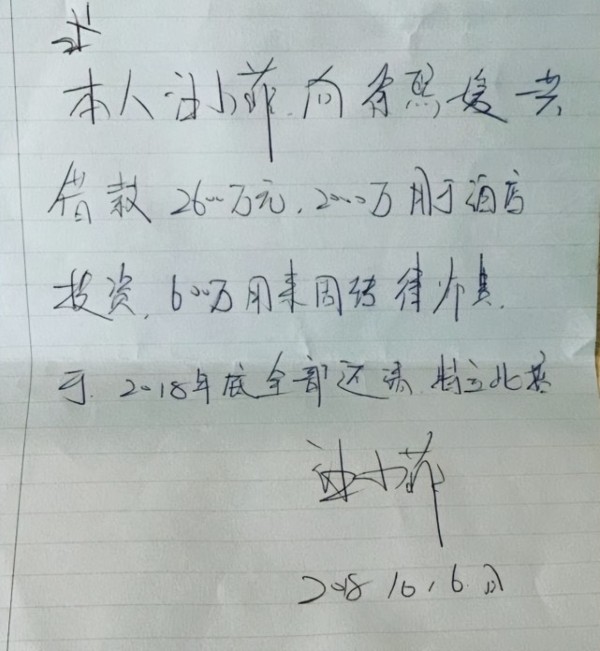 本人汪小菲.向 熙媛 共
借款 2600万元,2000万用于酒店
投资,600万用来周转律师费.
于.2018年底全部还清.特立此据
汪小菲
2018 10.6.